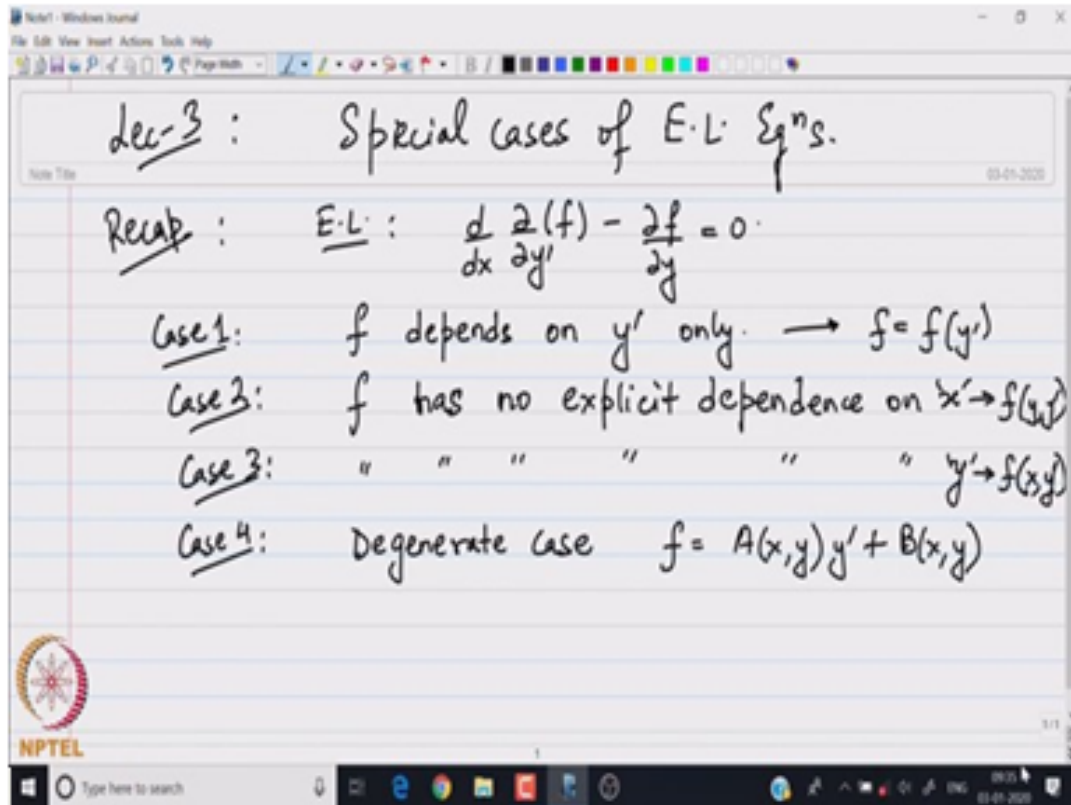 Note1 - Windows Journal
File Edit View Insert Actions Tools Help
Page Width
B I
Lec-3 : Special cases of E.L. Eqⁿs.
Note Title
03-01-2020
Recap : E.L. : d/dx ∂(f)/∂y' - ∂f/∂y = 0.
Case 1: f depends on y' only. → f = f(y')
Case 2: f has no explicit dependence on 'x' → f(y,y')
Case 3: " " " " " " 'y' → f(x,y')
Case 4: Degenerate case f = A(x,y) y' + B(x,y)
NPTEL
1/1
1
Type here to search
ENG
09:35
03-01-2020